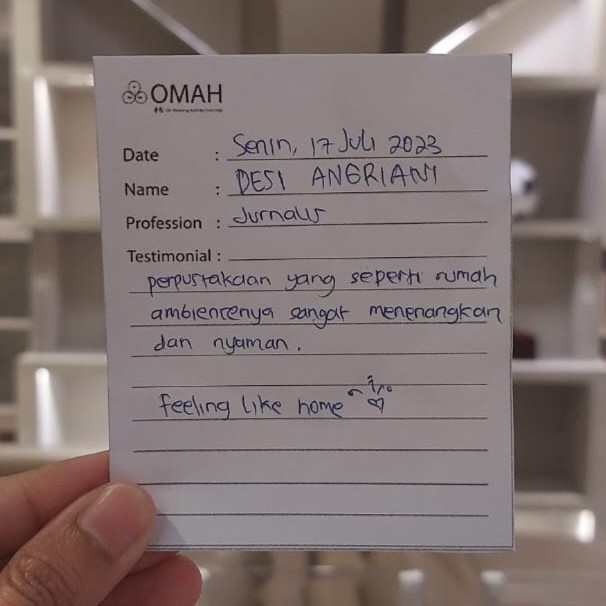 OMAH
Date : Senin, 17 Juli 2023
Name : DESI ANGRIANI
Profession : Jurnalis
Testimonial :
perpustakaan yang seperti rumah
ambiencenya sangat menenangkan
dan nyaman.
feeling like home